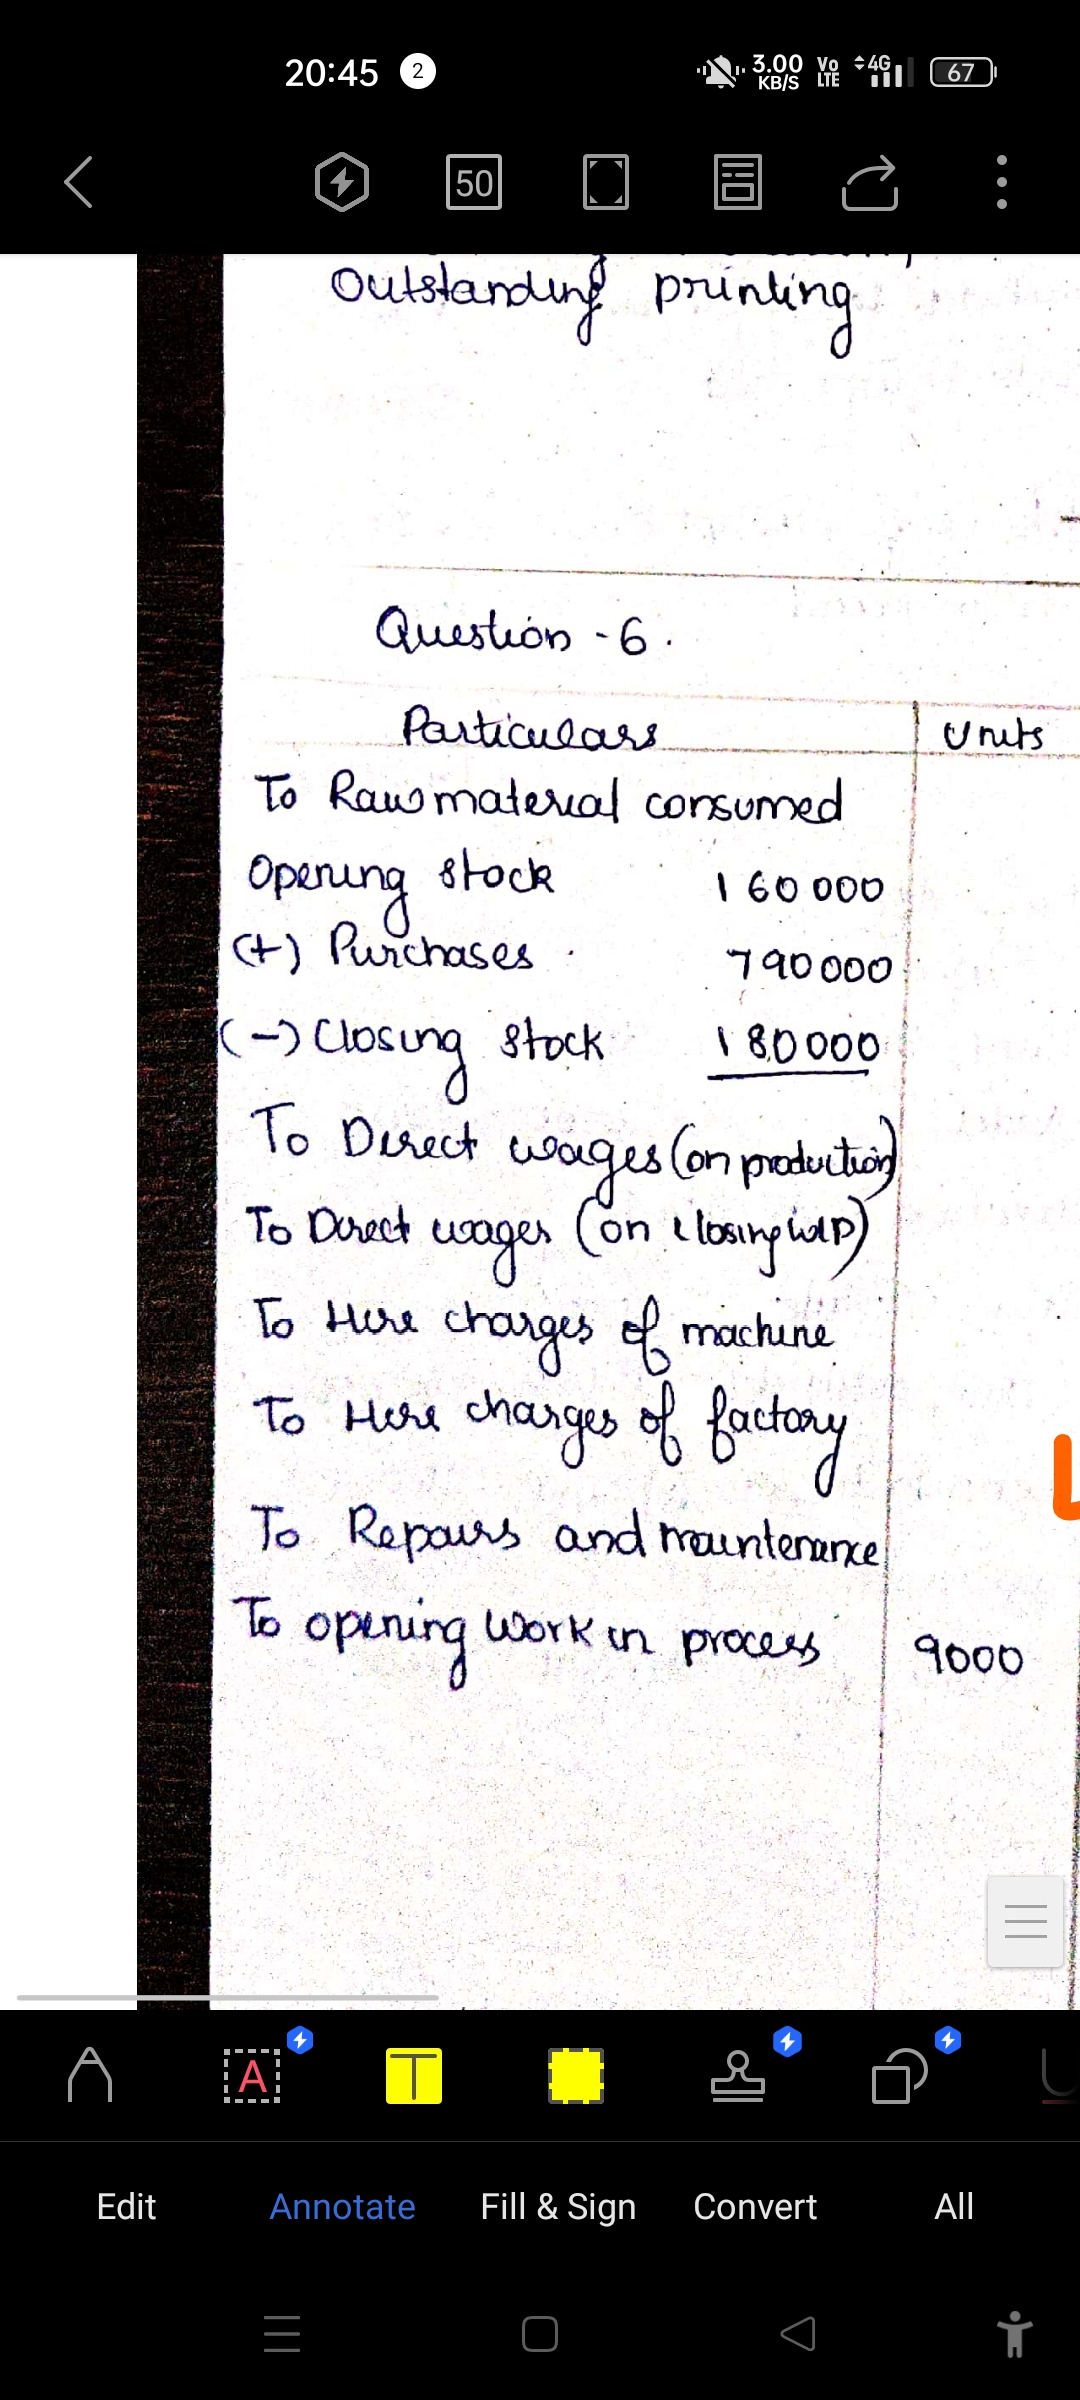 20:45 2 3.00 KB/S Vo LTE 4G 67
50
Outstanding printing
Question - 6.
Particulars Units
To Raw material consumed
Opening stock 160000
(+) Purchases 790000
(-) Closing stock 180000
To Direct wages (on production)
To Direct wages (on closing WIP)
To Hire charges of machine
To Hire charges of factory
To Repairs and maintenance
To opening work in process 9000
A T
Edit Annotate Fill & Sign Convert All